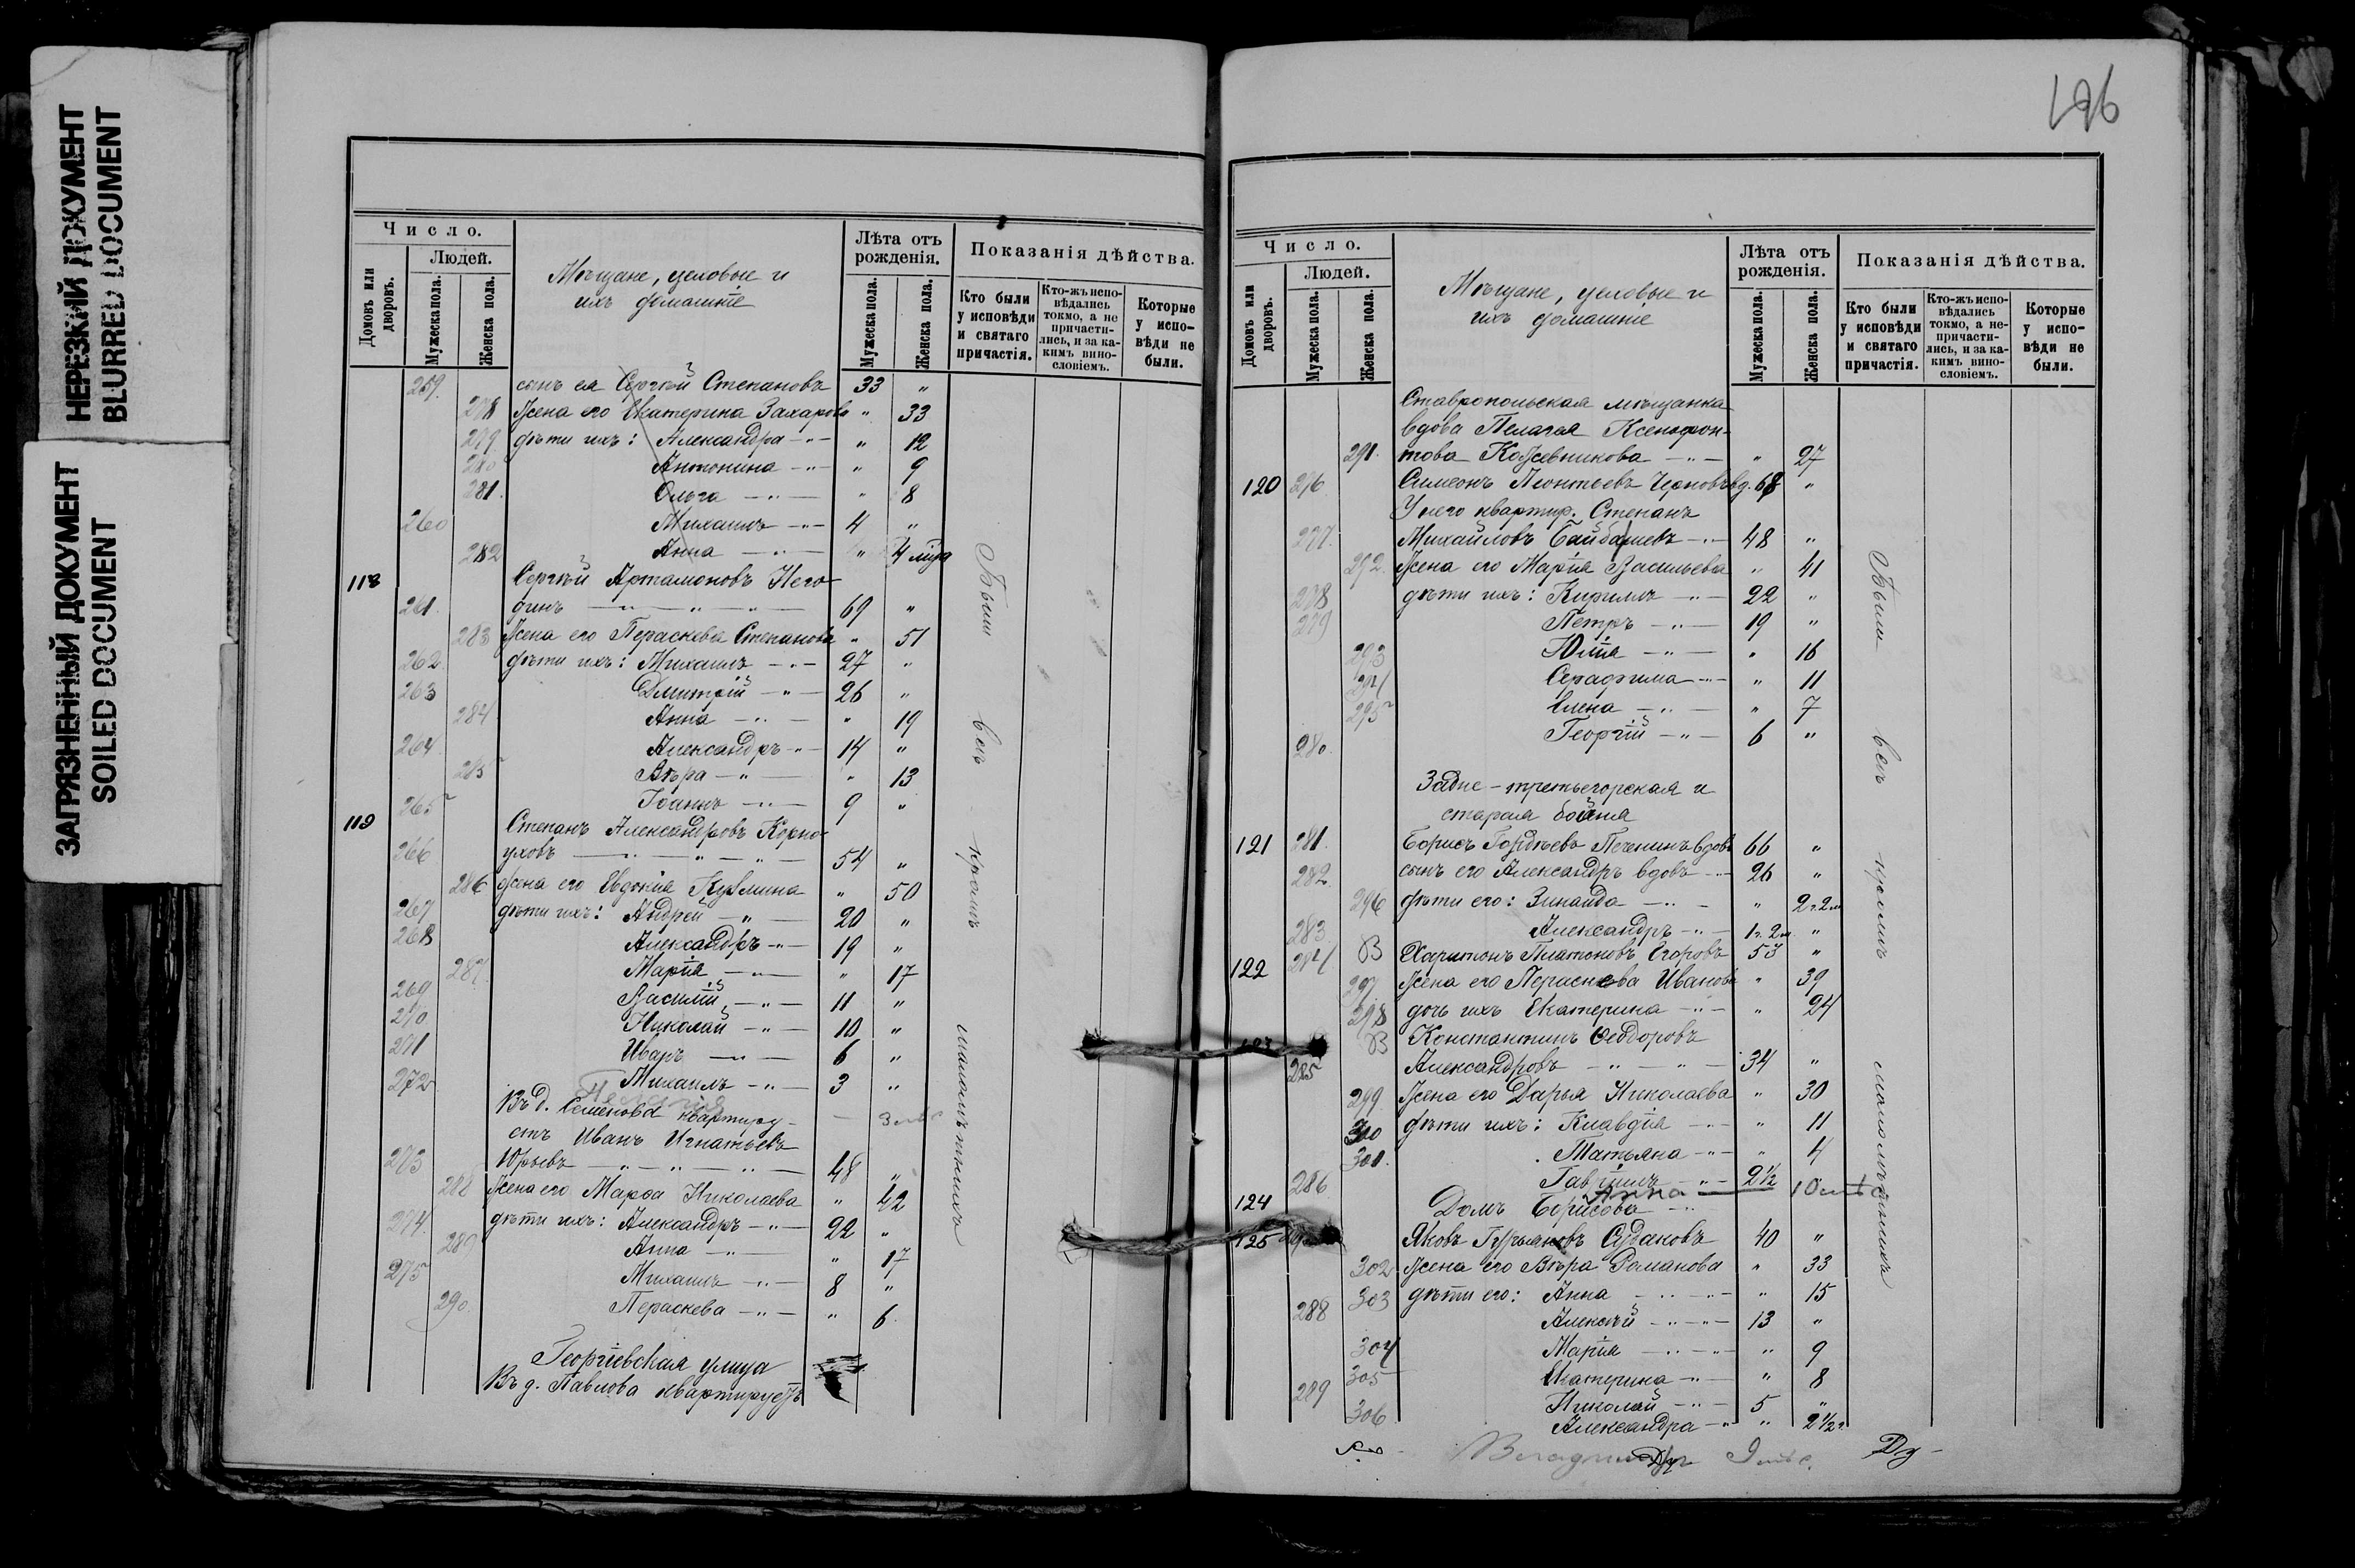 НЕРЕЗКИЙ ДОКУМЕНТ
BLURRED DOCUMENT
ЗАГРЯЗНЕННЫЙ ДОКУМЕНТ
SOILED DOCUMENT
Число.
Людей.
Домовъ или дворовъ.
Мужеска пола.
Женска пола.
Мѣщане, цеховые и
ихъ домашніе
Лѣта отъ рожденія.
Мужеска пола.
Женска пола.
Показанія дѣйства.
Кто были у исповѣди и святаго причастія.
Кто-жъ исповѣдались токмо, а не причастились, и за какимъ винословіемъ.
Которые у исповѣди не были.
259. сынъ ея Сергѣй Степановъ 33 "
278 Жена его Екатерина Захарова " 33
279 дѣти ихъ: Александра -"- " 12
280 Антонина -"- " 9
281. Ольга -"- " 8
260 Михаилъ -"- 4 "
282 Анна -"- " 4
118 Сергѣй Артамоновъ Него-
261. динъ -"- " - " 69 "
283 Жена его Параскева Степанова " 51
262 дѣти ихъ: Михаилъ -"- 27 "
263 Дмитрій -"- 26 "
284 Анна -"- " 19
264. Александръ -"- 14 "
285 Вѣра -"- " 13
265 Іоаннъ -"- 9 "
119 Степанъ Александровъ Корно-
266 уховъ -"- " - " 54 "
286 Жена его Евдокія Кузмина " 50
267 дѣти ихъ: Андрей -"- 20 "
268 Александръ -"- 19 "
287. Марія -"- " 17
269 Василій -"- 11 "
270. Николай -"- 10 "
271 Иванъ -"- 6 "
272 Михаилъ -"- 3 "
Пелагія 3 мѣс
Въ д. Семенова квартиру-
етъ Иванъ Игнатьевъ
273 Юрьевъ -"-"-"- 48 "
288 Жена его Марѳа Николаева " 42
274. дѣти ихъ: Александръ -"- 22 "
289 Анна -"- " 17
275 Михаилъ -"- 8 "
290. Параскева -"- " 6.
Георгіевская улица
Въ д. Павлова квартируетъ
Были всѣ кромѣ малолѣтнихъ
Число.
Людей.
Домовъ или дворовъ.
Мужеска пола.
Женска пола.
Мѣщане, цеховые и
ихъ домашніе
Лѣта отъ рожденія.
Мужеска пола.
Женска пола.
Показанія дѣйства.
Кто были у исповѣди и святаго причастія.
Кто-жъ исповѣдались токмо, а не-причастились, и за какимъ винословіемъ.
Которые у исповѣди не были.
Ставропольская мѣщанка
вдова Пелагея Ксенофон-
291. това Кожевникова -"- " 27
120 276 Симеонъ Леонтьевъ Черновъ вд. 68 "
У него квартир. Степанъ
277. Михайловъ -"- 48 "
292. Жена его Марія Васильева " 41
278 дѣти ихъ: Кириллъ -"- 22 "
279 Петръ -"- 19 "
293 Юлія -"- " 16
294 Серафима -"- " 11
295 Елена -"- " 7
280. Георгій -"- 6 "
Задне-третьегорская и
старая бойня
121 281. Борисъ Гордѣевъ Печенинъ вдовъ 66 "
282. сынъ его Александръ вдовъ -"- 26 "
296 дѣти его: Зинаида -"- " 2 г. 2 м
283 Александръ -"- 1 г. 2 м. "
122 284 В Харитонъ Платоновъ Егоровъ 53 "
297 Жена его Параскева Иванова " 39
298 дочь ихъ Екатерина -"- " 24
123 В Константинъ Ѳеодоровъ
285 Александровъ -"-"- 34 "
299. Жена его Дарья Николаева " 30
300 дѣти ихъ: Клавдія -"- " 11
301. Татьяна -"- " 4
286 Гавріилъ -"- 2½
Анна 10 мѣс
124 Домъ Борисова -"-
125 Яковъ Гурьяновъ Судаковъ 40 "
302 Жена его Вѣра Романова " 33
303 дѣти его: Анна -"-"- " 15
288 Алексѣй -"-"- 13 "
304 Марія -"-"- " 9
305 Екатерина -"- " 8
289 Николай -"- 5 "
306 Александра -"- " 2½ г.
Владиміръ 9 мѣс.
Были всѣ кромѣ малолѣтнихъ